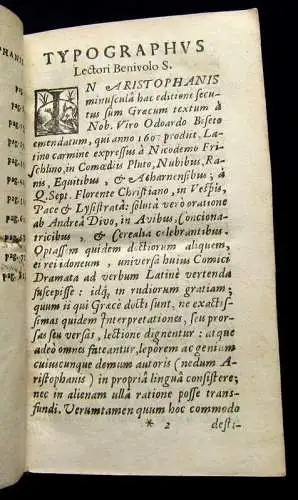 OPHANIS
pag.
pag.
pag.
pag.
pag.
pag.
TYPOGRAPHVS
Lectori Benivolo S.
IN ARISTOPHANIS
minusculâ hac editione secu-
tus sum Græcum textum à
Nob. Viro Odoardo Biseto
emendatum, qui anno 1607 prodiit, La-
tino carmine expressus à Nicodemo Fri-
schlino, in Comœdiis Pluto, Nubibus, Ra-
nis, Equitibus, & Acharnensibus; à
Q. Sept. Florente Christiano, in Vespis,
Pace & Lysistratâ: solutâ verò oratione
ab Andreâ Divo, in Avibus, Conciona-
tricibus, & Cerealia celebrantibus.
Optassem quidem doctiorum aliquem,
ei rei idoneum, universa hujus Comici
Dramata ad verbum Latinè vertenda
suscepisse: idq; in rudiorum gratiam;
quum ii qui Græcè docti sunt, ne exactis-
simas quidem Interpretationes, seu pror-
sas seu versas, lectione dignentur: atque
adeo omnes fateantur, leporem ac genium
cuiuscunque demum autoris (nedum A-
ristophanis) in propriâ linguâ consistere;
nec in alienam ullâ ratione posse trans-
fundi. Verumtamen quum hoc commodo
* 2
desti-